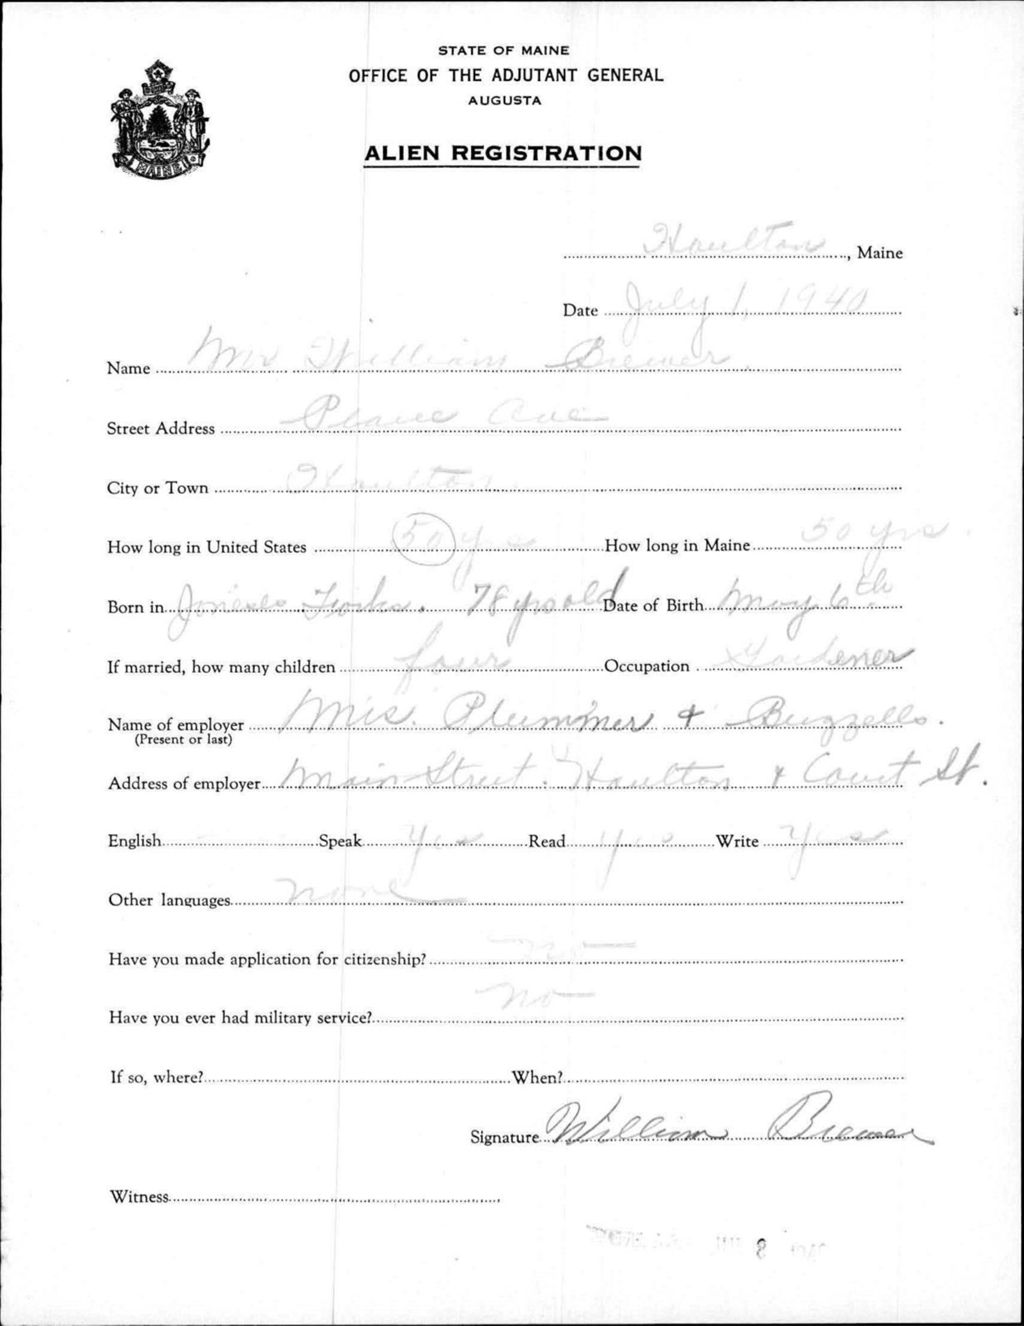 STATE OF MAINE
OFFICE OF THE ADJUTANT GENERAL
AUGUSTA
ALIEN REGISTRATION
MAINE
Houlton, Maine
Date July 1, 1940
Name Mr William Brewer
Street Address Ave
City or Town Houlton
How long in United States 50 yrs How long in Maine 50 yrs.
Born in Forks. 78 yrs old Date of Birth May 6th
If married, how many children four Occupation Gardener
Name of employer Mrs. Plummer + Buzzells.
(Present or last)
Address of employer Main Street. Houlton + Court St.
English Speak Yes Read Yes Write Yes
Other languages none
Have you made application for citizenship? No
Have you ever had military service? No
If so, where? When?
Signature William Brewer
Witness